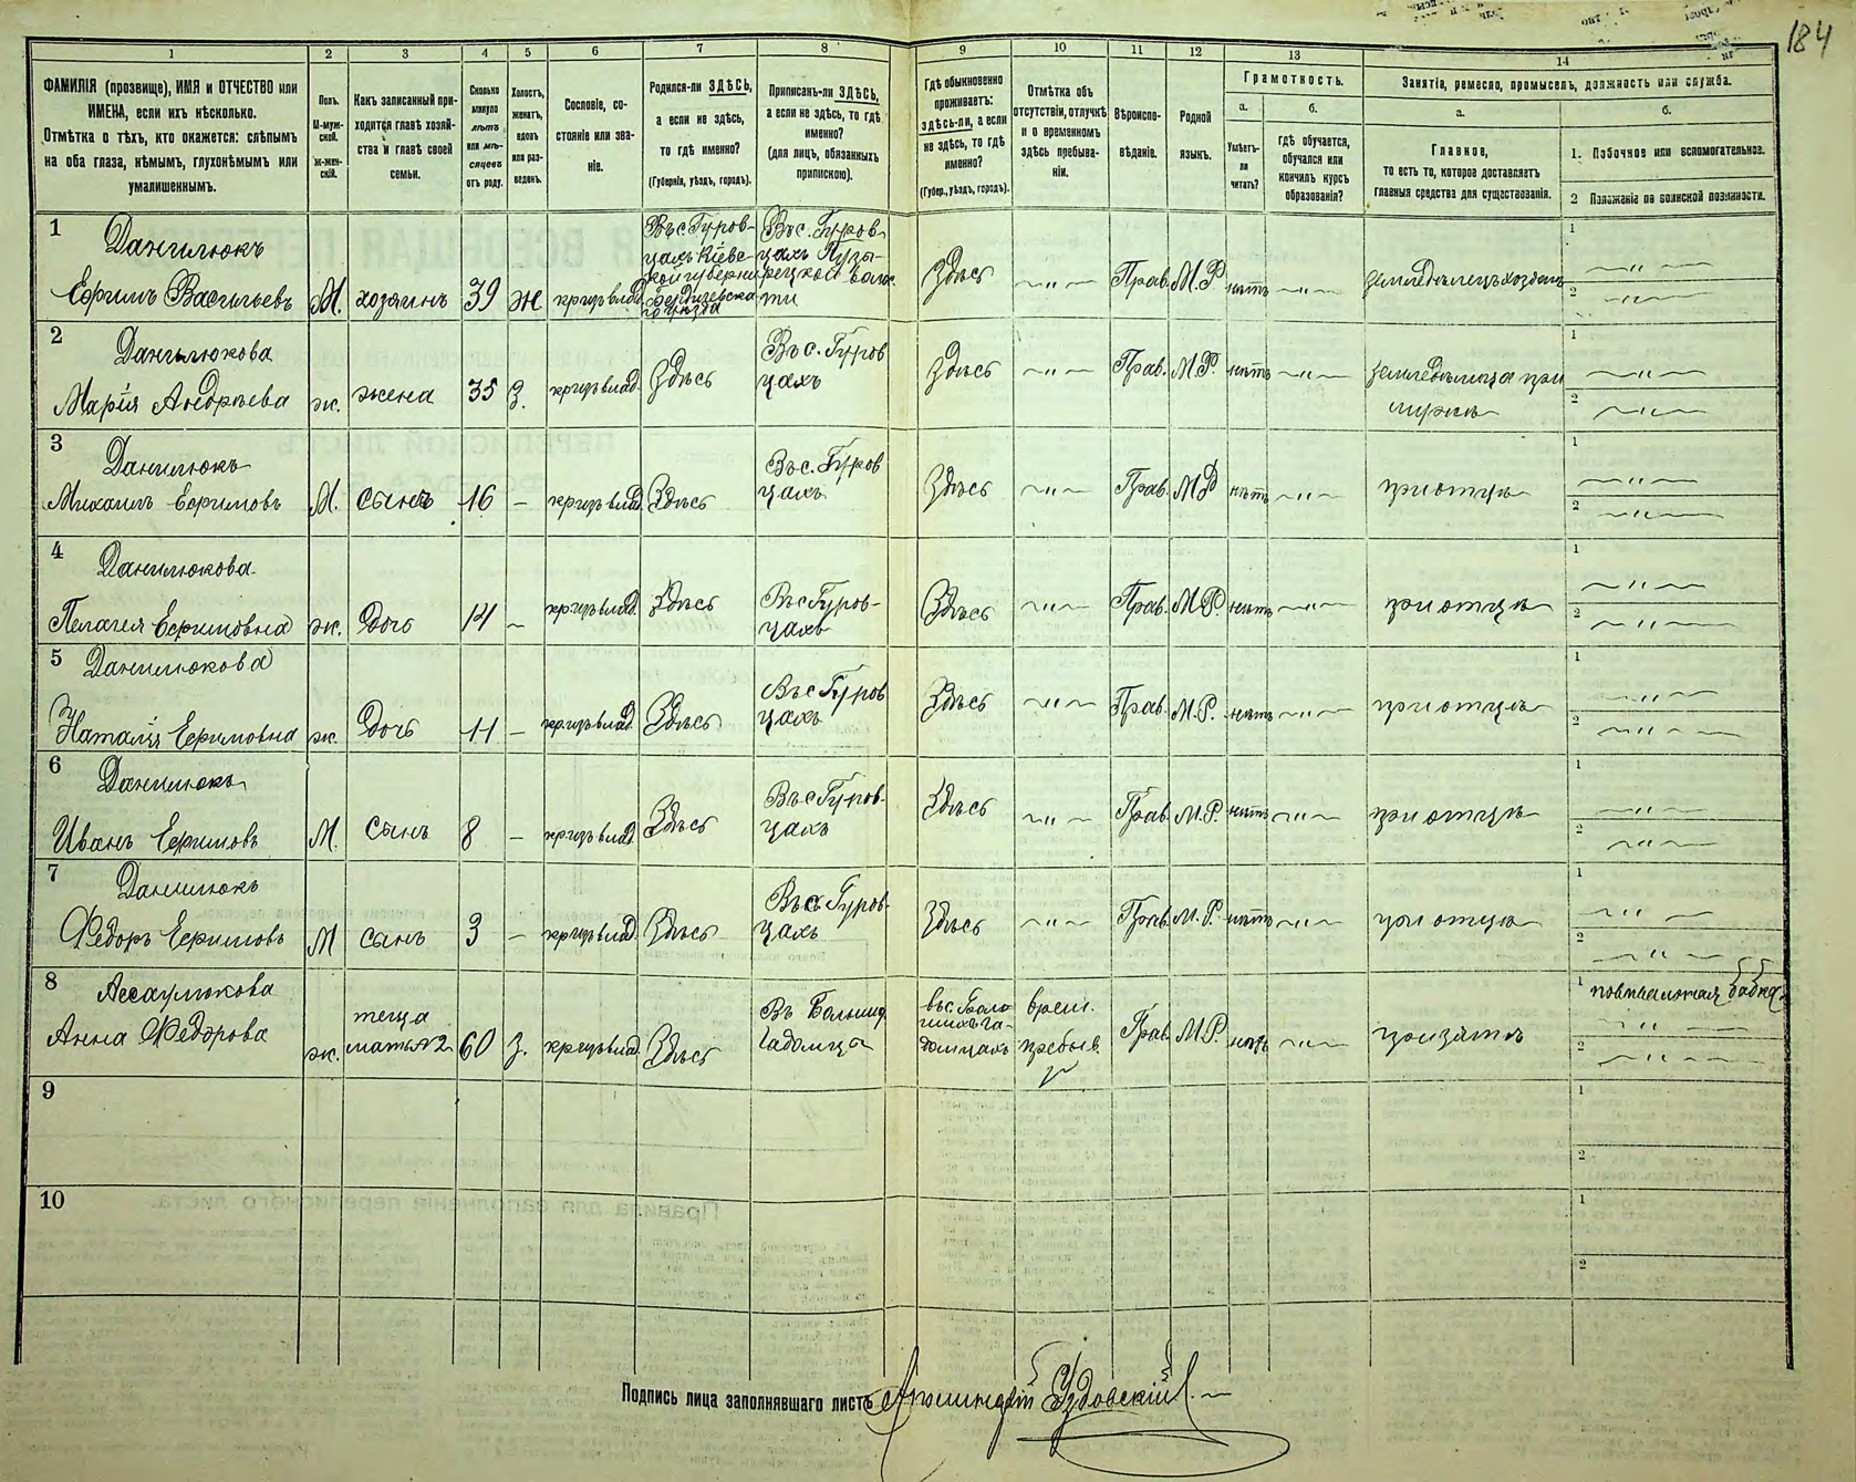 184
1
2
3
4
5
6
7
8
9
10
11
12
13
14
ФАМИЛІЯ (прозвище), ИМЯ и ОТЧЕСТВО или
ИМЕНА, если ихъ нѣсколько.
Отмѣтка о тѣхъ, кто окажется: слѣпымъ
на оба глаза, нѣмымъ, глухонѣмымъ или
умалишеннымъ.
Полъ.
М-муж-
ской.
Ж-жен-
скій.
Какъ записанный при-
ходится главѣ хозяй-
ства и главѣ своей
семьи.
Сколько
минуло
лѣтъ
или мѣ-
сяцевъ
отъ роду.
Холостъ,
женатъ,
вдовъ
или раз-
веденъ.
Сословіе, со-
стояніе или зва-
ніе.
Родился-ли ЗДѢСЬ,
а если не здѣсь,
то гдѣ именно?
(Губернія, уѣздъ, городъ).
Приписанъ-ли ЗДѢСЬ,
а если не здѣсь, то гдѣ
именно?
(для лицъ, обязанныхъ
припискою).
Гдѣ обыкновенно
проживаетъ:
ЗДѢСЬ-ли, а если
не здѣсь, то гдѣ
именно?
(Губер., уѣздъ, городъ).
Отмѣтка объ
отсутствіи, отлучкѣ
и о временномъ
здѣсь пребыва-
ніи.
Вѣроиспо-
вѣданіе.
Родной
языкъ.
Грамотность.
а.
Умѣетъ-
ли
читать?
б.
гдѣ обучается,
обучался или
кончилъ курсъ
образованія?
Занятіе, ремесло, промыселъ, должность или служба.
а.
Главное,
то есть то, которое доставляетъ
главныя средства для существованія.
б.
1. Побочное или вспомогательное.
2 Положеніе по воинской повинности.
1 Данилюкъ
Ефримъ Васильевъ М. хозяинъ 39 ж крізъ влад.
Въ с. Гуров-
цахъ Кіевс-
кой губерни
Бердичевска
го уѣзда
Въ с. Гуров-
цахъ
Здѣсь ~"~ Прав. М.Р. нѣтъ ~"~ земледѣлецъ хозяин
1 ~"~
2 ~"~
2 Данилюкова
Марія Андрѣева ж. жена 35 З. крізъ влад. Здѣсь
Въ с. Гуров
цахъ
Здѣсь ~"~ Прав. М.Р. нѣтъ ~"~ земледѣлица при
мужѣ
1 ~"~
2 ~"~
3 Данилюкъ
Михаилъ Ефримовъ М. сынъ 16 – крізъ влад. Здѣсь
Въ с. Гуров
цахъ
Здѣсь ~"~ Прав. М.Р. нѣтъ ~"~ при отцѣ
1 ~"~
2 ~"~
4 Данилюкова
Пелагея Ефримовна ж. дочь 14 ~ крізъ влад. Здѣсь
Въ с Гуров-
цахъ
Здѣсь ~"~ Прав. М.Р. нѣтъ ~"~ при отцѣ
1 ~"~
2 ~"~
5 Данилюкова
Наталія Ефримовна ж. дочь 11 – крізъ влад. Здѣсь
Въ с Гуров
цахъ
Здѣсь ~"~ Прав. М.Р. нѣтъ ~"~ при отцѣ
1 ~"~
2 ~"~
6 Данилюкъ
Иванъ Ефримовъ М. сынъ 8 – крізъ влад. Здѣсь
Въ с Гуров-
цахъ
Здѣсь ~"~ Прав. М.Р. нѣтъ ~"~ при отцѣ
1 ~"~
2 ~"~
7 Данилюкъ
Федоръ Ефримовъ М сынъ 3 – крізъ влад. Здѣсь
Въ с. Гуров-
цахъ
Здѣсь ~"~ Прав. М.Р. нѣтъ ~"~ при отцѣ
1 ~"~
2 ~"~
8 Ассаулюкова
Анна Федорова ж.
теща
мать №2 60 З. крізъ влад. Здѣсь
Въ
въ с.
врем.
пребыв.
Прав. М.Р. нѣтъ ~"~ при зятѣ
1 повивальная бабка
~"~
2 ~"~
9
1
2
10
1
2
Подпись лица заполнявшаго листъ